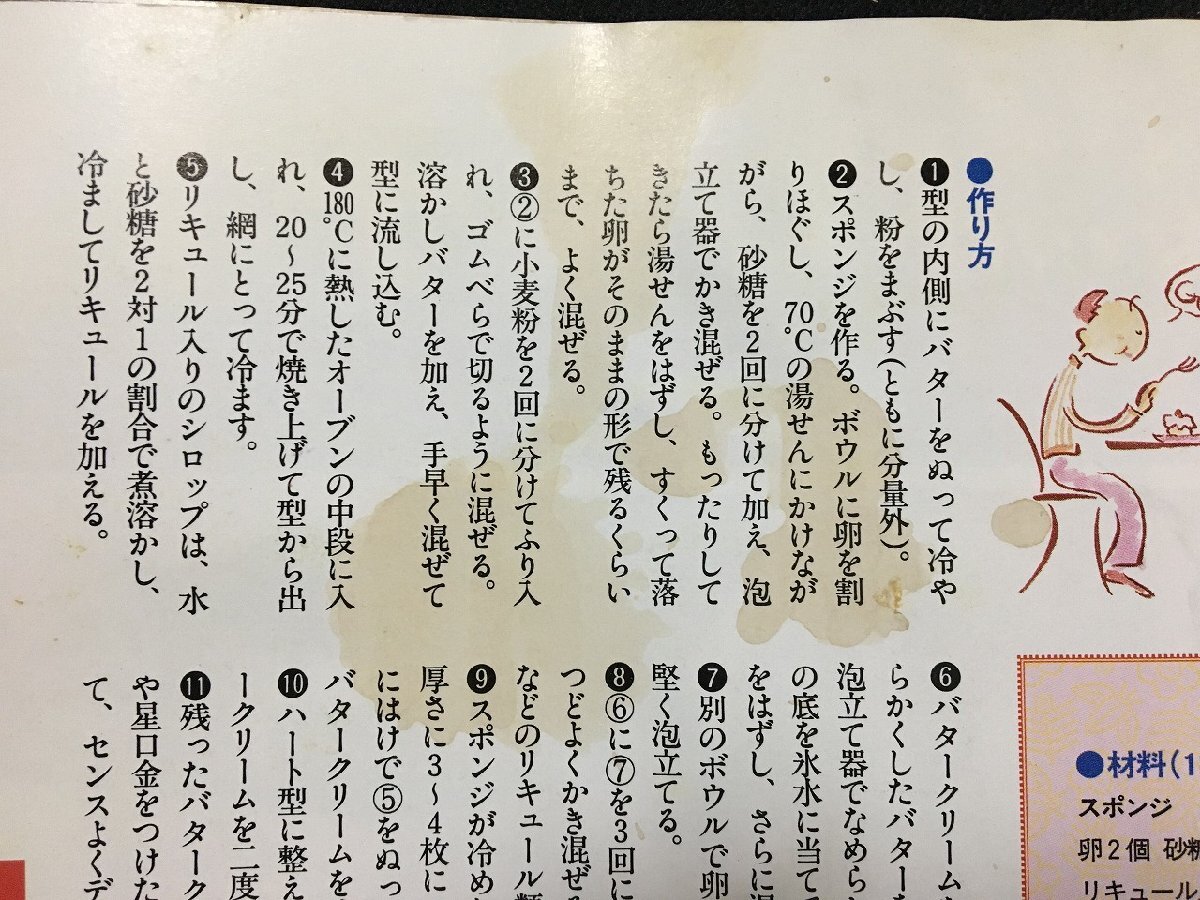 ●作り方
❶型の内側にバターをぬって冷や
し、粉をまぶす(ともに分量外)。
❷スポンジを作る。ボウルに卵を割
りほぐし、70℃の湯せんにかけなが
がら、砂糖を2回に分けて加え、泡
立て器でかき混ぜる。もったりして
きたら湯せんをはずし、すくって落
ちた卵がそのままの形で残るくらい
まで、よく混ぜる。
❸②に小麦粉を2回に分けてふり入
れ、ゴムべらで切るように混ぜる。
溶かしバターを加え、手早く混ぜて
型に流し込む。
❹180℃に熱したオーブンの中段に入
れ、20〜25分で焼き上げて型から出
し、網にとって冷ます。
❺リキュール入りのシロップは、水
と砂糖を2対1の割合で煮溶かし、
冷ましてリキュールを加える。
❻バタークリーム
らかくしたバターを
泡立て器でなめら
の底を氷水に当て
をはずし、さらに
❼別のボウルで卵
堅く泡立てる。
❽⑥に⑦を3回に
つどよくかき混ぜ
などのリキュール類
❾スポンジが冷め
厚さに3〜4枚に
にはけで⑤をぬっ
バタークリームを
❿ハート型に整え
ークリームを二度
⓫残ったバターク
や星口金をつけた
て、センスよくデ
●材料(1
スポンジ
卵2個 砂糖
リキュール